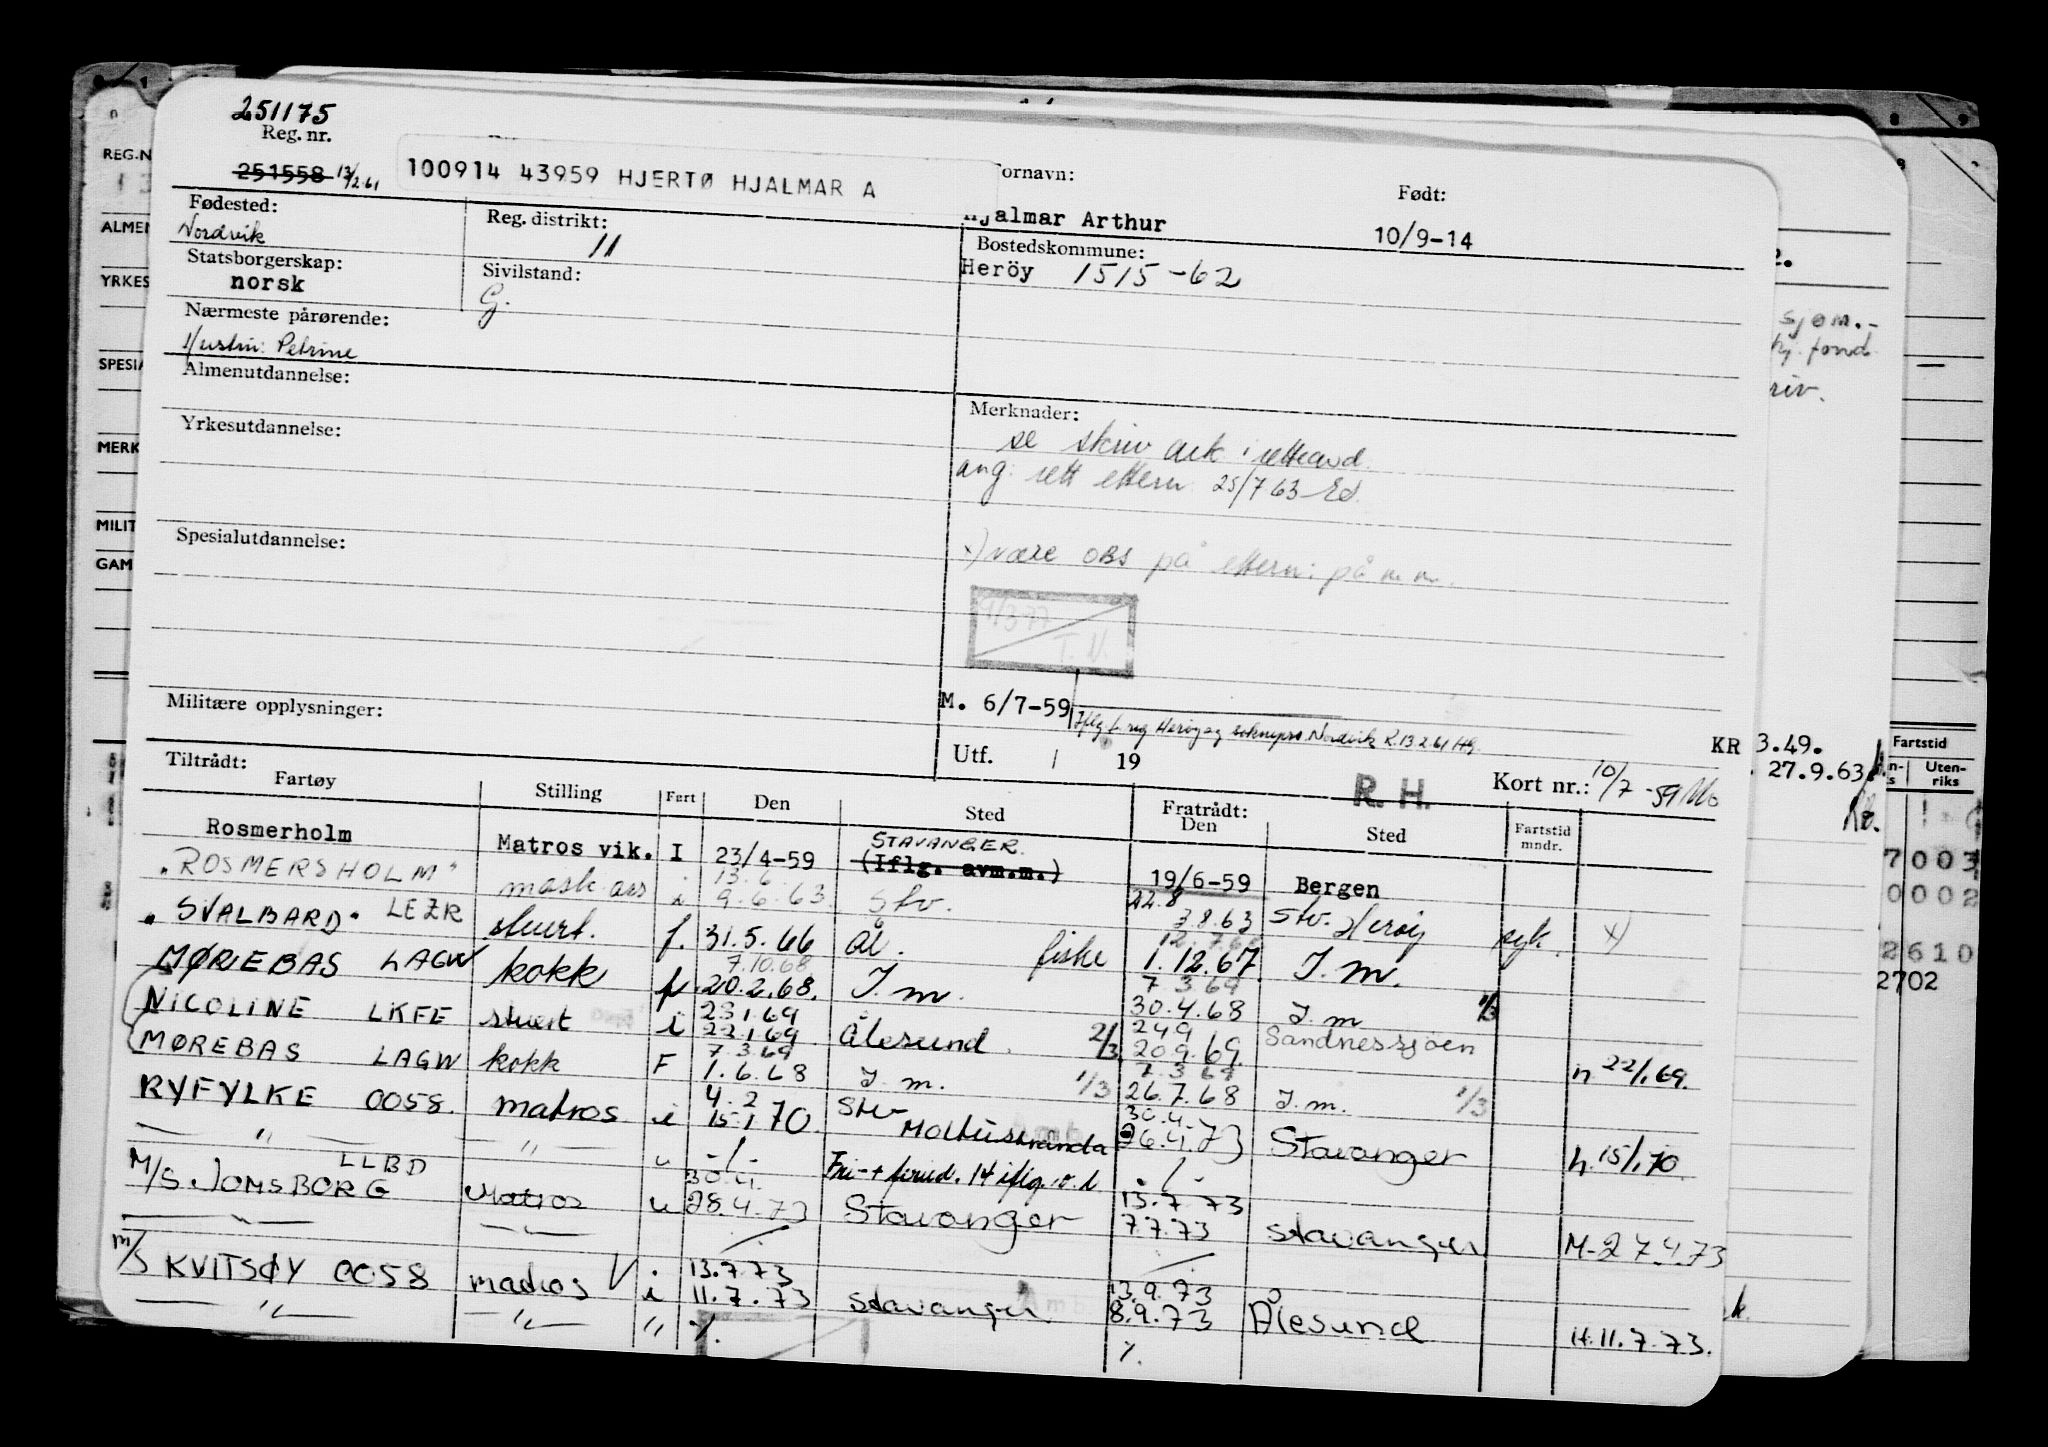 251175
Reg. nr.
251558 13/2.61
100914 43959 HJERTØ HJALMAR A
ornavn:
Født:
jalmar Arthur
10/9-14
Fødested:
Nordvik
Reg. distrikt:
11
Bostedskommune:
Heröy 1515-62
Statsborgerskap:
norsk
Sivilstand:
G.
Nærmeste pårørende:
Hustru: Petrine
Almenutdannelse:
Merknader:
se skriv ark i rettsavd.
ang. rett ettern. 25/7 63
Yrkesutdannelse:
x) være OBS på ettern: på m.m.
Spesialutdannelse:
9/3 77
T. N.
M. 6/7-59
Militære opplysninger:
Utf. / 19
R. H.
Kort nr.: 10/7-59
Tiltrådt:
Fartøy Stilling Fart Den Sted Fratrådt: Den Sted Fartstid mndr.
Rosmerholm Matros vik. I 23/4-59 STAVANGER (Iflg. avm.m.) 19/6-59 Bergen
"ROSMERSHOLM" mask. ass i 13.6 9.6.63 Stv. 22.8 3.8.63 Stv. Herøy syk. x)
"SVALBARD" LEZR stuert. f. 31.5.66 Ål. fiske 12.7.66 1.12.67 I.m.
MØREBAS LAGW kokk f. 7.10.68 20.2.68. I.m. 7.3.69 30.4.68 I.m 1/3
NICOLINE LKFE stuert i 23.1.69 22.1.69 Ålesund 2/3 24.9 20.9.69 Sandnessjøen h 22/1.69.
MØREBAS LAGW kokk F 7.3.69 1.6.68 I.m. 1/3 7.3.69 26.7.68 I.m. 1/3
RYFYLKE 0058. matros i 4.2 15.1 70 Stv 30.4. 26.4.73 Stavanger h. 15/1.70
— " — — " — " -/- Moltustranda -/-
M/S. JOMSBORG LLBD Matros u 30.4. 28.4.73 Stavanger 13.7.73 7.7.73 stavanger M-27.4.73
— " — — " —
M/S KVITSØY 0058 matros i 13.7.73 11.7.73 stavanger. 13.9.73 8.9.73 Ålesund H.11.7.73.
— " — — " — " %. %.
REG.N
ALMEN
YRKES
SPESIA
MERK
MILIT
GAM
sjøm.-
fond
riv.
KR 3.49.
27.9.63
Fartstid
Uten-riks
7003
0002
2610
2702